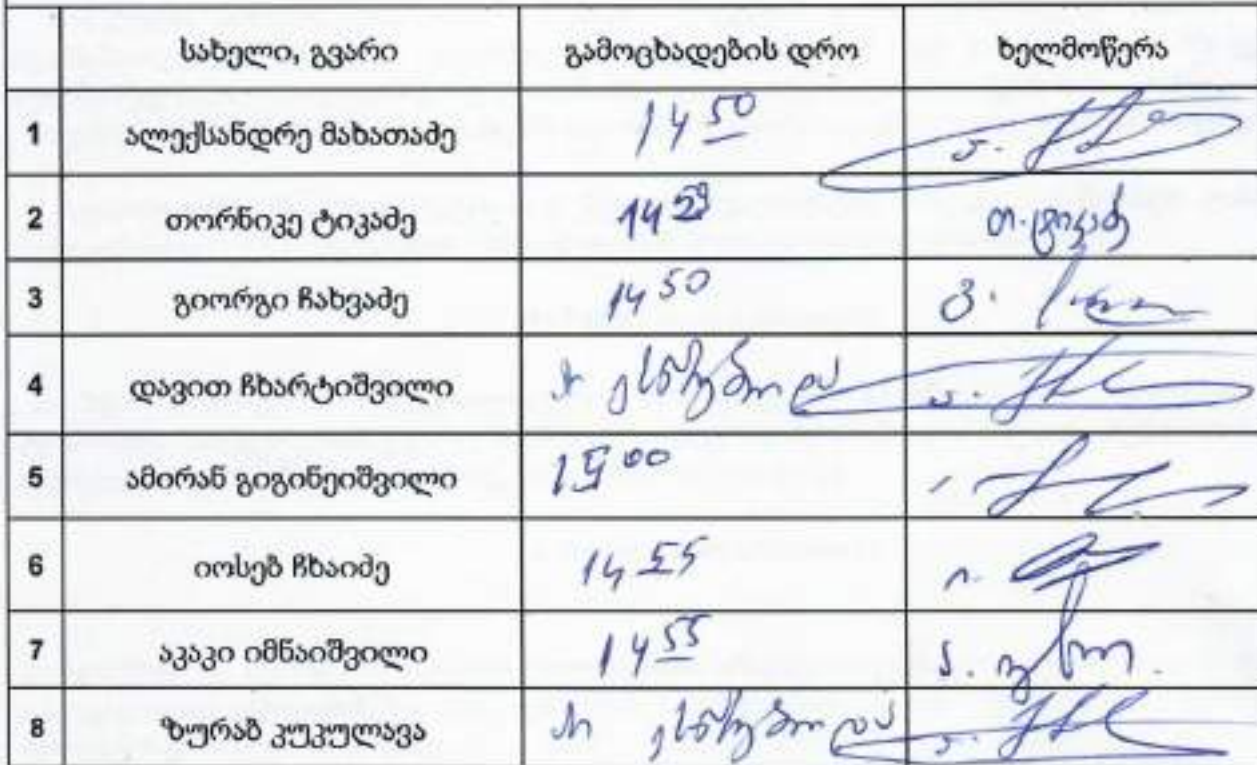 სახელი, გვარი გამოცხადების დრო ხელმოწერა
1 ალექსანდრე მახათაძე 14 50
2 თორნიკე ტიკაძე 14 29 თ.ტიკაძ
3 გიორგი ჩახვაძე 14 50 გ.
4 დავით ჩხარტიშვილი არ ესწრებოდა
5 ამირან გიგინეიშვილი 15 00
6 იოსებ ჩხაიძე 14 55 ი.
7 აკაკი იმნაიშვილი 14 55 ა.
8 ზურაბ კუკულავა არ ესწრებოდა